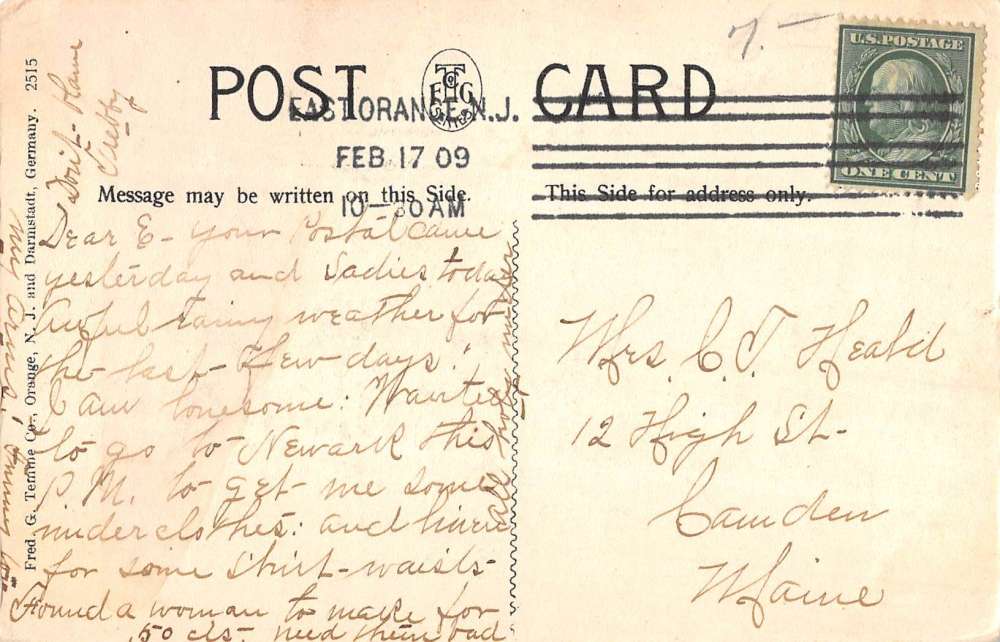 POST CARD
F T Co G
EAST ORANGE, N.J.
FEB 17 09
10-30 AM
U.S. POSTAGE
ONE CENT
7.—
Message may be written on this Side.
This Side for address only.
Fred. G. Temme Co., Orange, N. J. and Darmstadt, Germany. 2515
Dear E- Your Postal came
yesterday and Sadies today
Awful rainy weather for
the last few days.
I am lonesome: Wanted
to go to Newark this
P.M. to get me some
underclothes: and linen
for some Shirt-waists-
Found a woman to make for
.50 cts- need them bad
Mrs. C. T. Heald
12 High St-
Camden
Maine
Don't blame
all
my